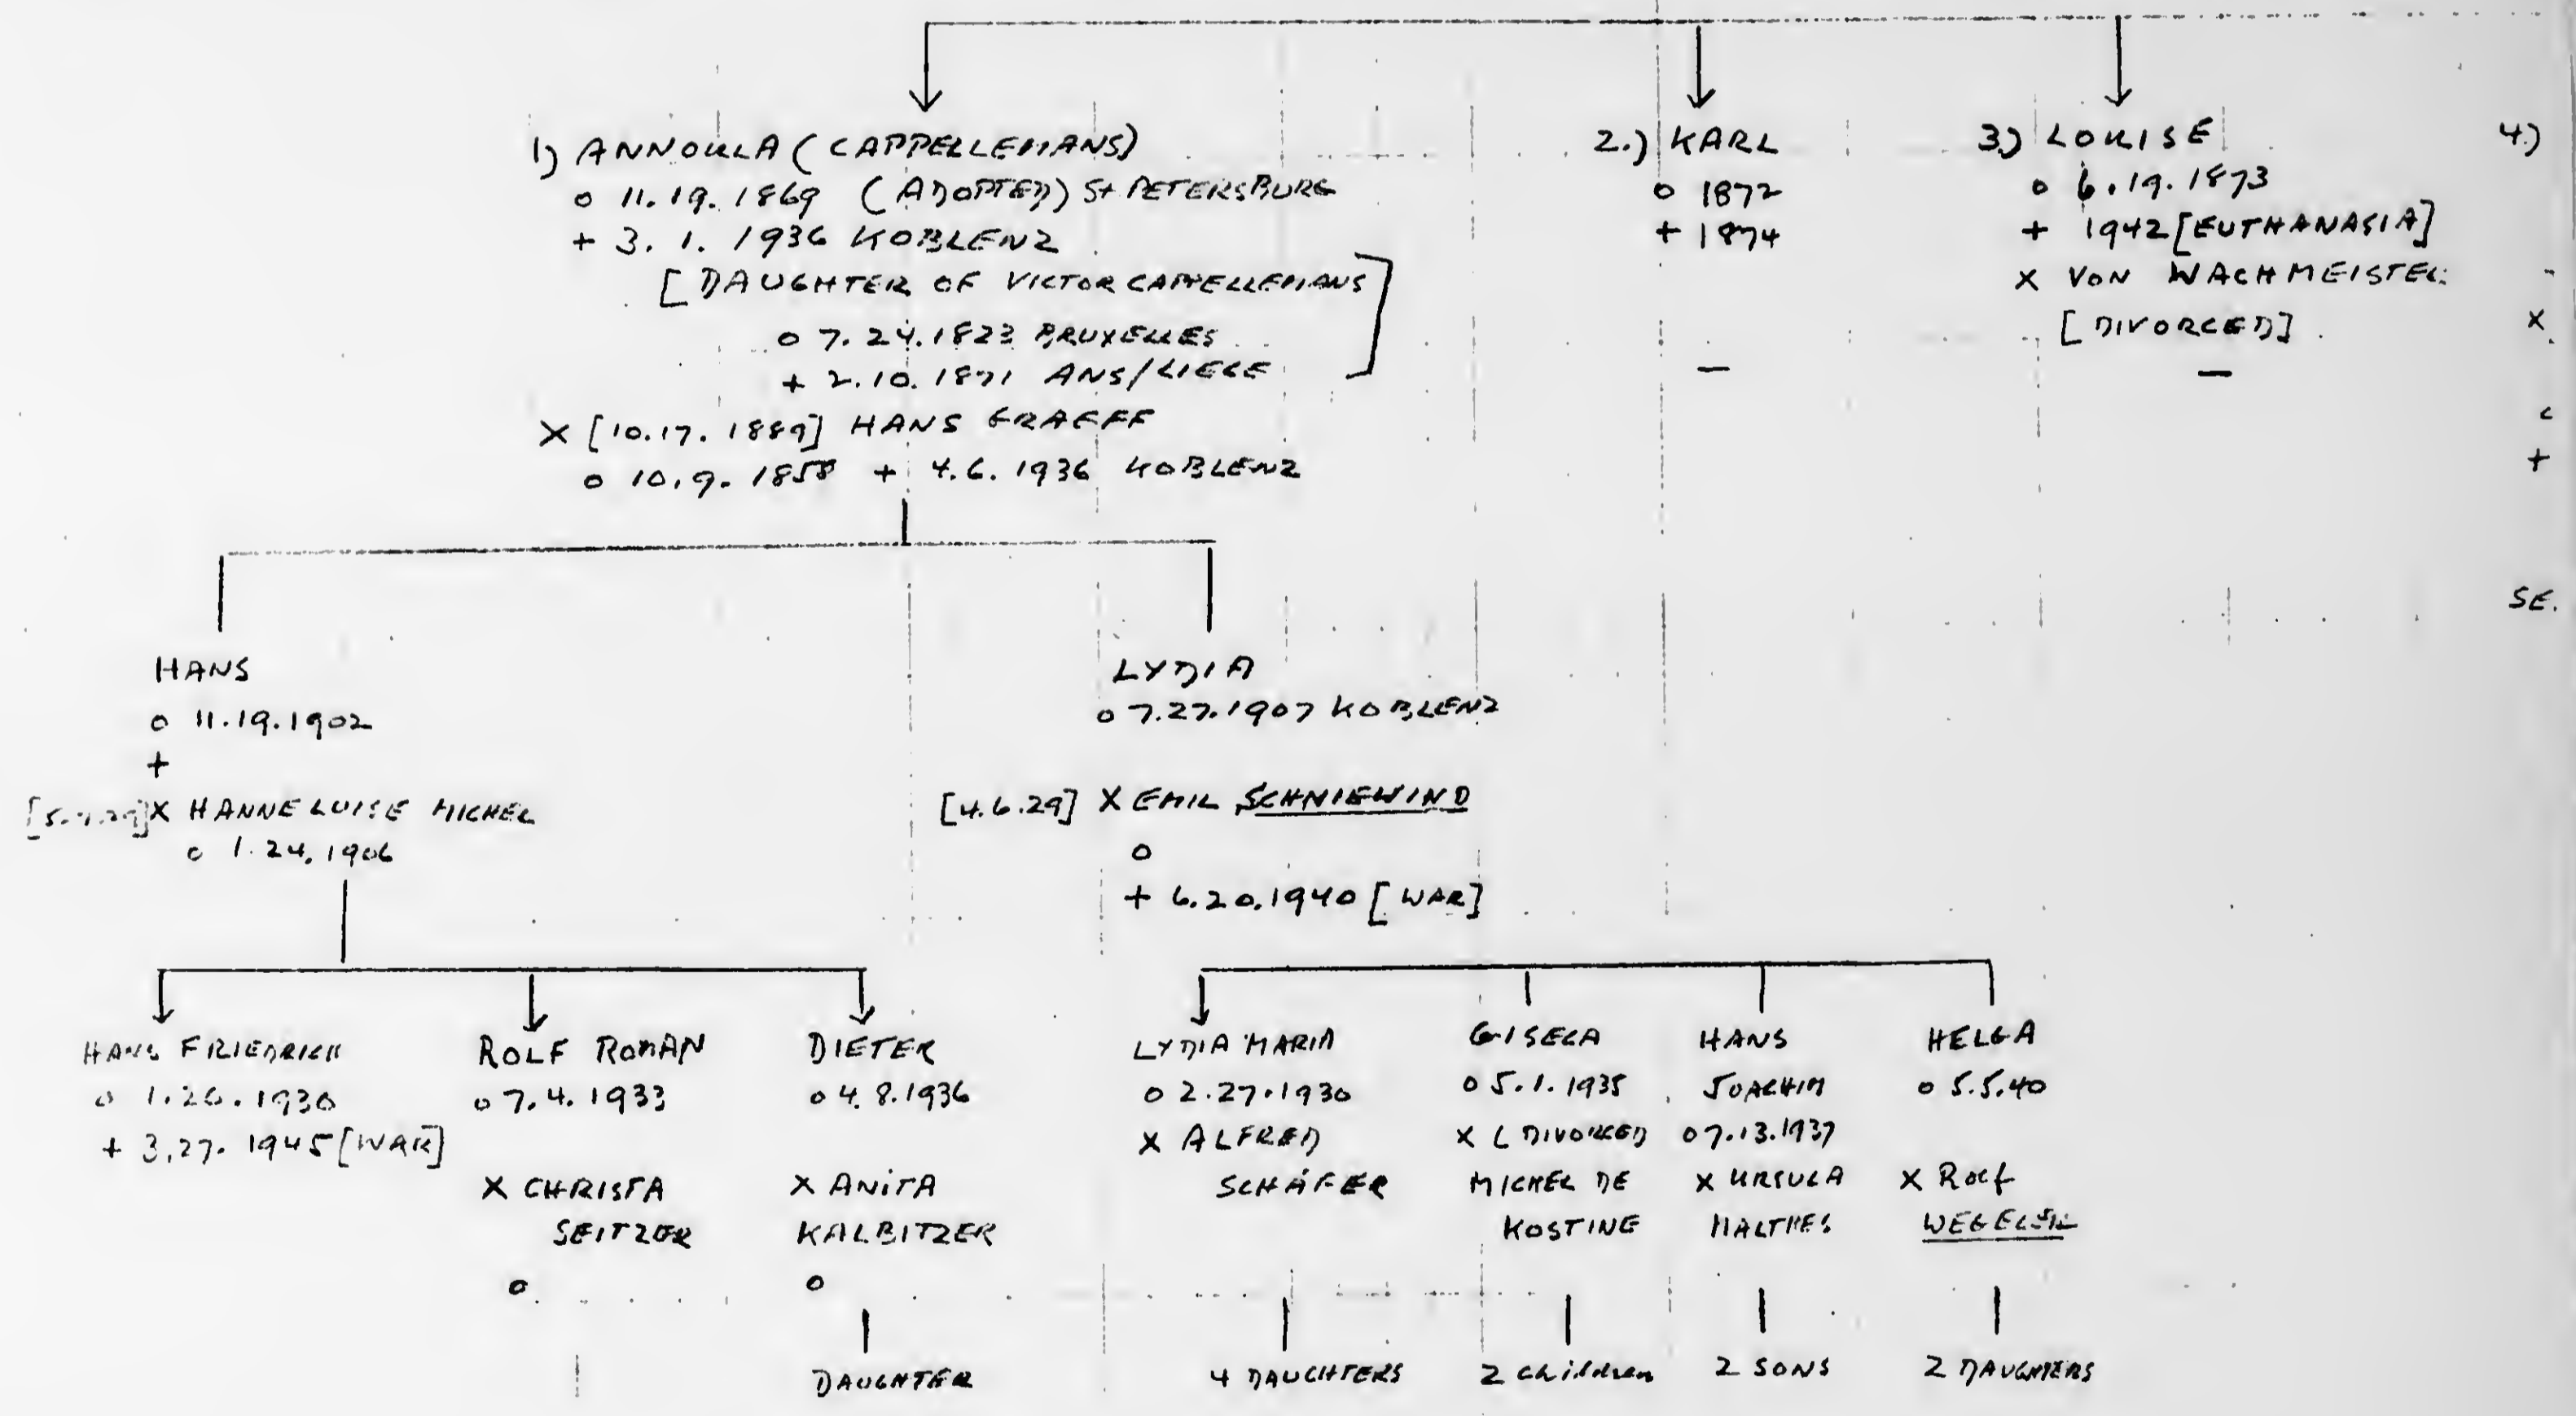 1) ANNOULA (CAPPELLEMANS)
o 11.19.1869 (ADOPTED) St PETERSBURG
+ 3. 1. 1936 KOBLENZ
[DAUGHTER OF VICTOR CAPPELLEMANS
o 7.24.1823 BRUXELLES
+ 2.10.1871 ANS/LIEGE ]
X [10.17.1889] HANS GRAEFF
o 10.9.1858 + 4.6.1936 KOBLENZ
2.) KARL
o 1872
+ 1874
—
3.) LOUISE
o 6.19.1873
+ 1942 [EUTHANASIA]
X VON WACHMEISTER
[DIVORCED]
—
4.)
X
+
SE.
HANS
o 11.19.1902
+
X HANNELUISE MICHEL
o 1.24.1906
LYDIA
o 7.27.1907 KOBLENZ
[4.6.29] X EMIL SCHNIEWIND
o
+ 6.20.1940 [WAR]
HANS FRIEDRICH
o 1.26.1930
+ 3.27.1945 [WAR]
ROLF ROMAN
o 7.4.1933
X CHRISTA
SEITZER
o
DIETER
o 4.8.1936
X ANITA
KALBITZER
o
DAUGHTER
LYDIA MARIA
o 2.27.1930
X ALFRED
SCHÄFER
4 DAUGHTERS
GISELA
o 5.1.1935
X ( DIVORCED
MICHEL DE
KOSTINE
2 children
HANS
JOACHIM
o 7.13.1937
X URSULA
MALTHES
2 SONS
HELGA
o 5.5.40
X Rolf
2 DAUGHTERS